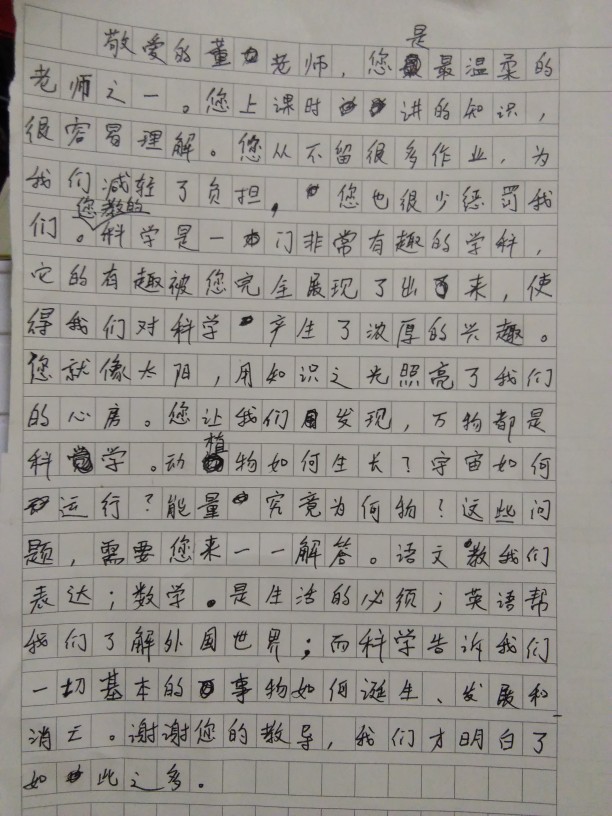 敬爱的董老师，您是最温柔的
老师之一。您上课时讲的知识，
很容易理解。您从不留很多作业，为
我们减轻了负担，您也很少惩罚我
们。您教的科学是一门非常有趣的学科，
它的有趣被您完全展现了出来，使
得我们对科学产生了浓厚的兴趣。
您就像太阳，用知识之光照亮了我们
的心房。您让我们发现，万物都是
科学。动植物如何生长？宇宙如何
运行？能量究竟为何物？这些问
题，需要您来一一解答。语文教我们
表达；数学是生活的必须；英语帮
我们了解外国世界；而科学告诉我们
一切基本的事物如何诞生、发展和
消亡。谢谢您的教导，我们才明白了
如此之多。